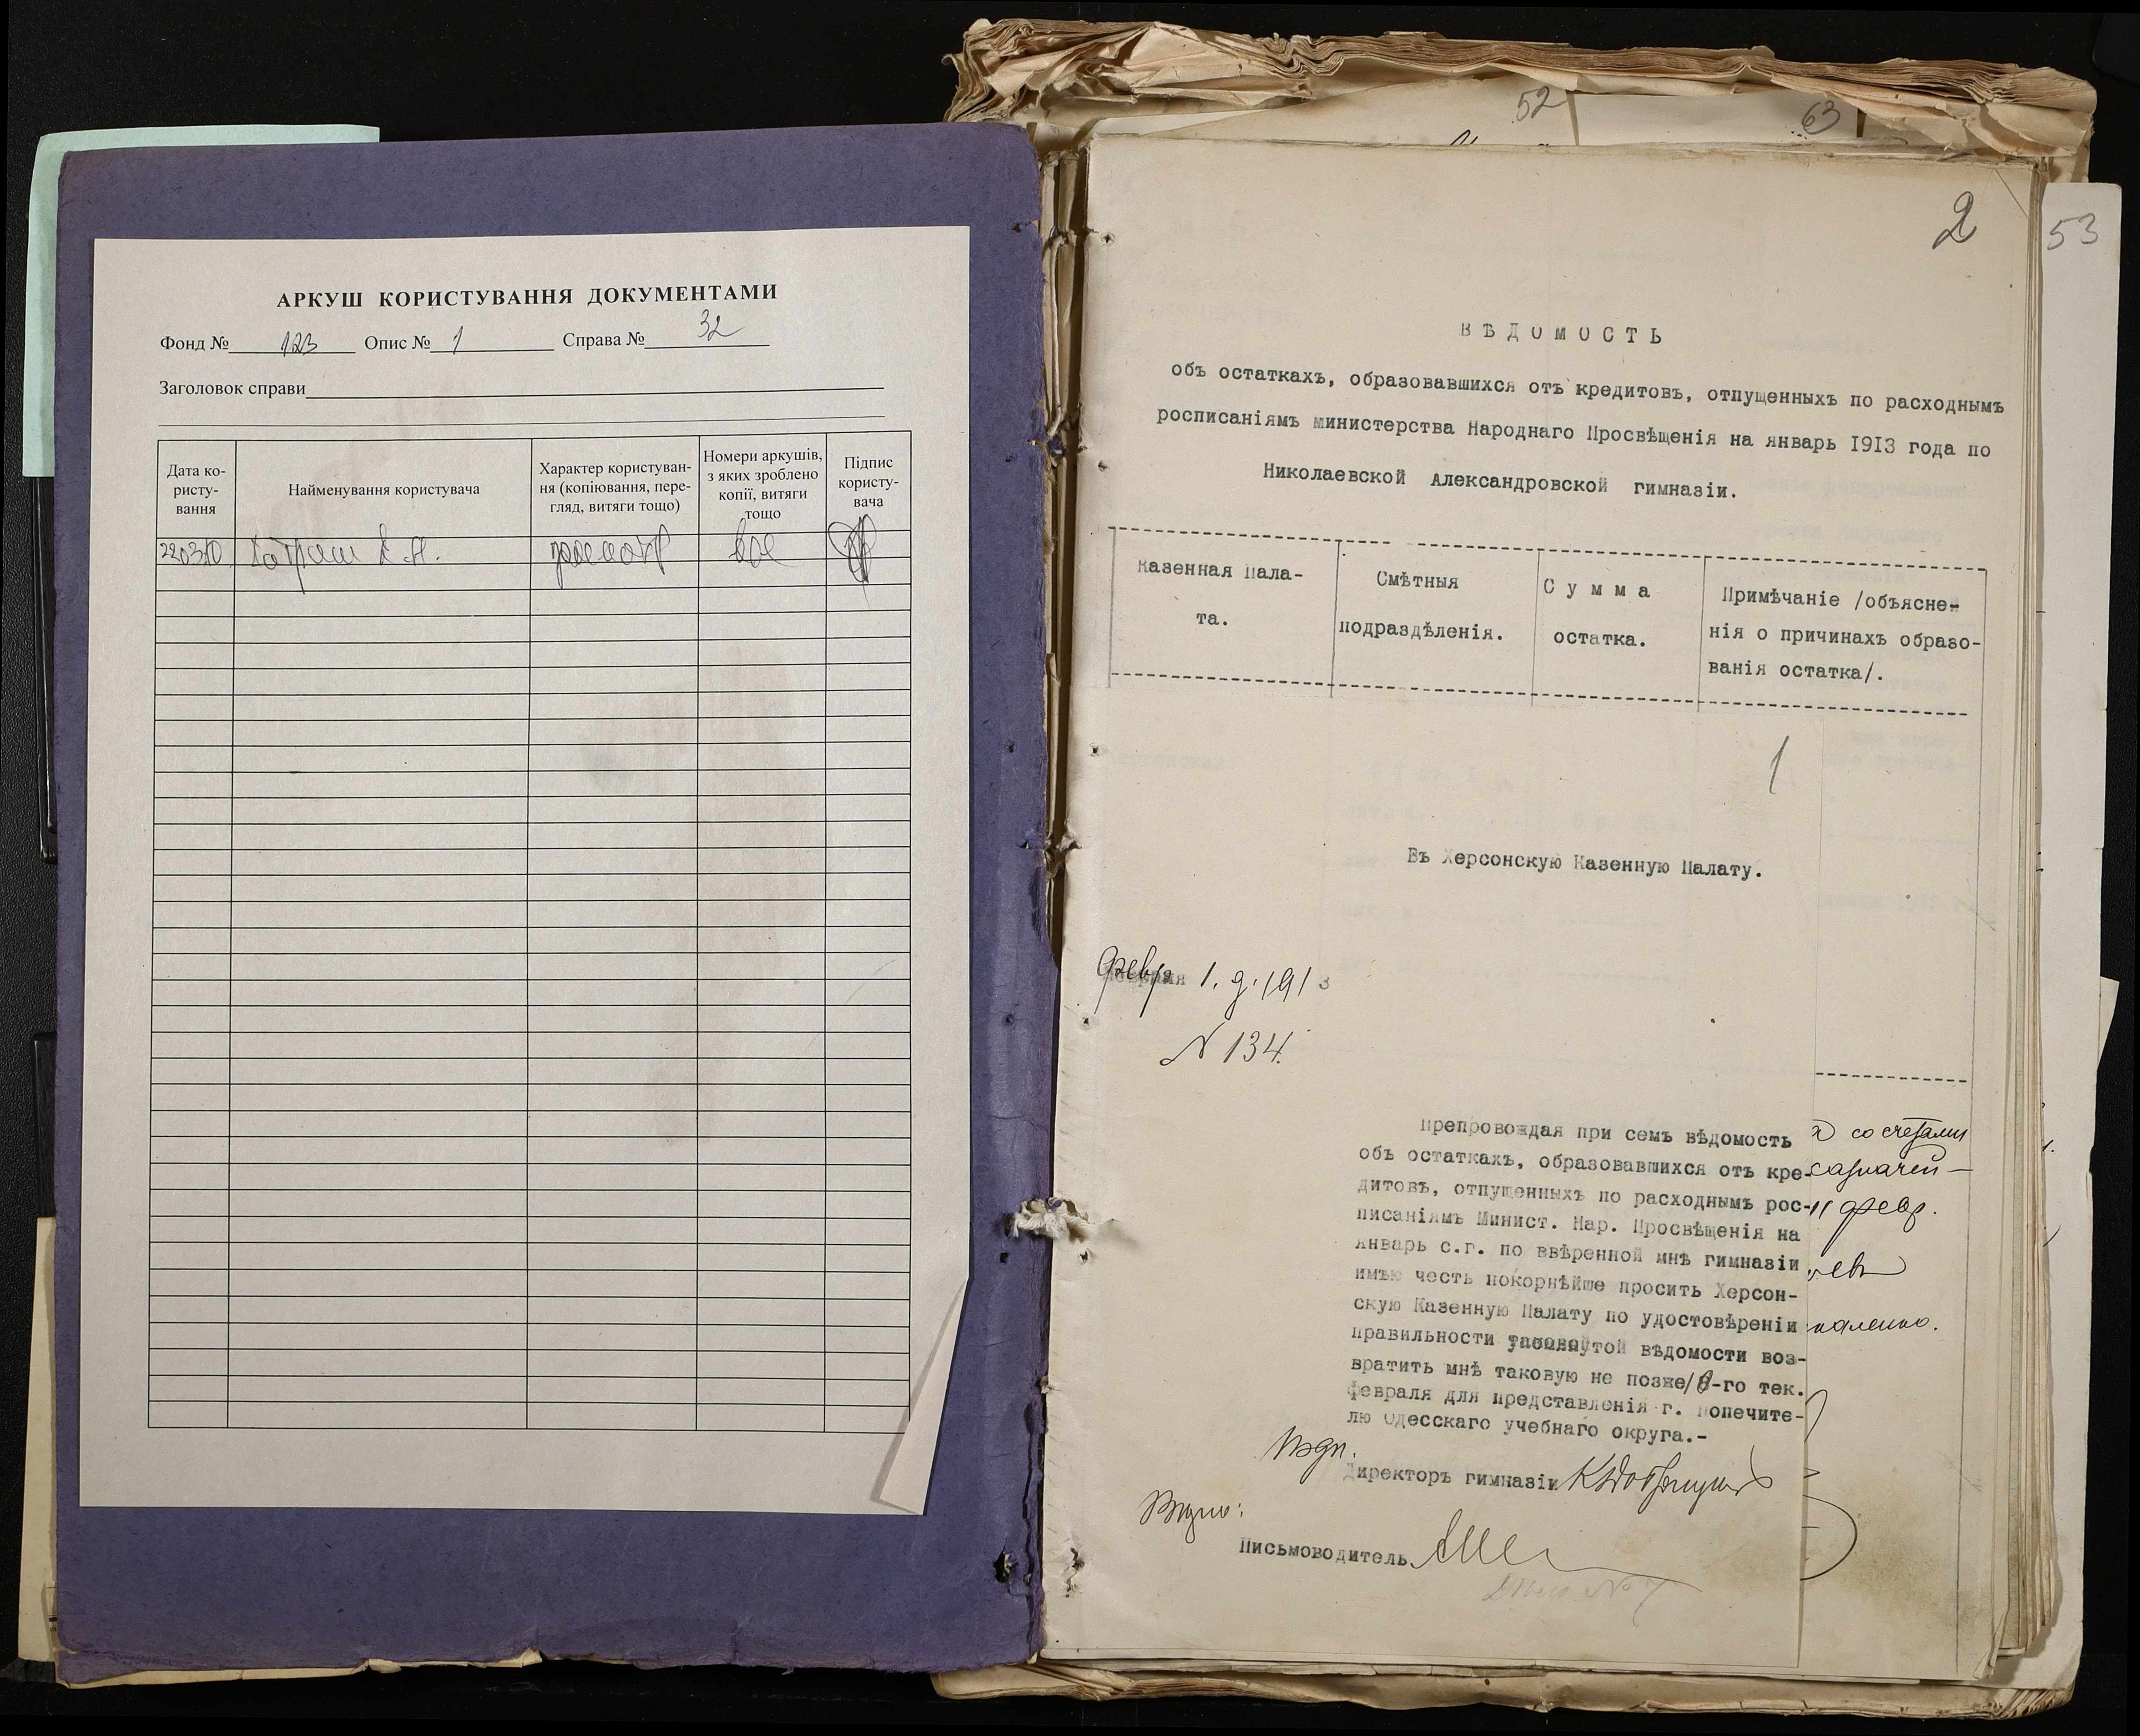 АРКУШ КОРИСТУВАННЯ ДОКУМЕНТАМИ
Фонд № 123 Опис № 1 Справа № 32
Заголовок справи
Дата ко-
ристу-
вання
Найменування користувача
Характер користуван-
ня (копіювання, пере-
гляд, витяги тощо)
Номери аркушів,
з яких зроблено
копії, витяги
тощо
Підпис
користу-
вача
52
63
53
2
ВѢДОМОСТЬ
объ остаткахъ, образовавшихся отъ кредитовъ, отпущенныхъ по расходнымъ
росписаніямъ министерства Народнаго Просвѣщенія на январь 1913 года по
Николаевской Александровской гимназіи.
Казенная Пала-
та.
Смѣтныя
подраздѣленія.
Сумма
остатка.
Примѣчаніе /объясне-
нія о причинахъ образо-
ванія остатка/.
1
Въ Херсонскую Казенную Палату.
февр 1. д. 1913
N 134.
Препровождая при семъ вѣдомость
объ остаткахъ, образовавшихся отъ кре-
дитовъ, отпущенныхъ по расходнымъ рос-
писаніямъ Минист. Нар. Просвѣщенія на
январь с.г. по ввѣренной мнѣ гимназіи
имѣю честь покорнѣйше просить Херсон-
скую Казенную Палату по удостовѣреніи
правильности упомянутой вѣдомости воз-
вратить мнѣ таковую не позже -го тек.
февраля для представленія г. Попечите-
лю Одесскаго учебнаго округа.-
со счетами
11 февр.
Подп.
Директоръ гимназіи
Вѣрно:
Письмоводитель